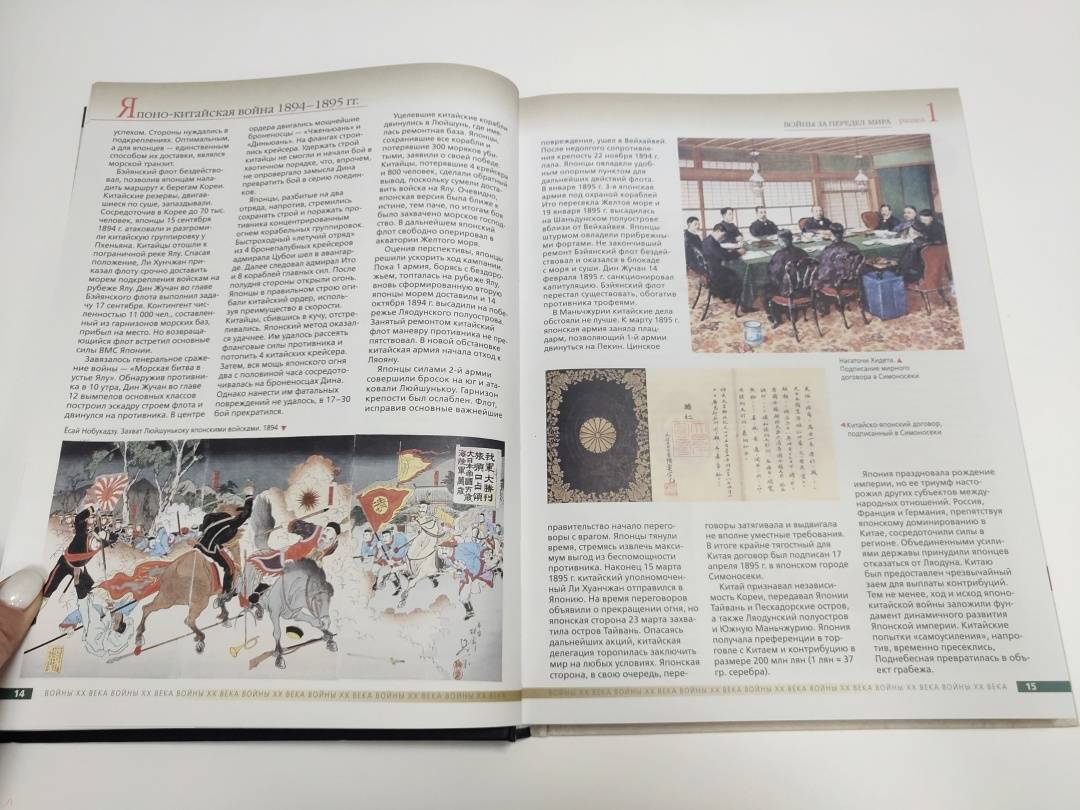 Японо-китайская война 1894–1895 гг.
успехом. Стороны нуждались в
подкреплениях. Оптимальным,
а для японцев — единственным
способом их доставки, являлся
морской транзит.
Бэйянский флот бездейство-
вал, позволив японцам нала-
дить маршрут к берегам Кореи.
Китайские резервы, двигав-
шиеся по суше, запаздывали.
Сосредоточив в Корее до 70 тыс.
человек, японцы 15 сентября
1894 г. атаковали и разгроми-
ли китайскую группировку у
Пхеньяна. Китайцы отошли к
пограничной реке Ялу. Спасая
положение, Ли Хунчжан при-
казал флоту срочно доставить
морем подкрепления войскам на
рубеже Ялу. Дин Жучан во главе
Бэйянского флота выполнил зада-
чу 17 сентября. Контингент чис-
ленностью 11 000 чел., составлен-
ный из гарнизонов морских баз,
прибыл на место. Но возвраща-
ющийся флот встретил основные
силы ВМС Японии.
Завязалось генеральное сраже-
ние войны — «Морская битва в
устье Ялу». Обнаружив противни-
ка в 10 утра, Дин Жучан во главе
12 вымпелов основных классов
построил эскадру строем флота и
двинулся на противника. В центре
ордера двигались мощнейшие
броненосцы — «Чженьюань» и
«Диньюань». На флангах строи-
лись крейсера. Удержать строй
китайцы не смогли и начали бой в
хаотичном порядке, что, впрочем,
не опровергало замысла Дина
превратить бой в серию поедин-
ков.
Японцы, разбитые на два
отряда, напротив, стремились
сохранять строй и поражать про-
тивника концентрированным
огнем корабельных группировок.
Быстроходный «летучий отряд»
из 4 бронепалубных крейсеров
адмирала Цубои шел в авангар-
де. Далее следовал адмирал Ито
и 8 кораблей главных сил. После
полудня стороны открыли огонь.
Японцы в правильном строю оги-
бали китайский ордер, исполь-
зуя преимущество в скорости.
Китайцы, сбившись в кучу, отстре-
ливались. Японский метод оказал-
ся удачнее. Им удалось рассеять
фланговые силы противника и
потопить 4 китайских крейсера.
Затем, вся мощь японского огня
два с половиной часа сосредото-
чивалась на броненосцах Дина.
Однако нанести им фатальных
повреждений не удалось, в 17–30
бой прекратился.
Уцелевшие китайские корабли
двинулись в Люйшунь, где име-
лась ремонтная база. Японцы,
сохранившие все корабли и
потерявшие 300 моряков уби-
тыми, заявили о своей победе.
Китайцы, потерявшие 4 крейсера
и 800 человек, сделали обратный
вывод, поскольку сумели доста-
вить войска на Ялу. Очевидно,
японская версия была ближе к
истине, тем паче, по итогам боя
было захвачено морское господ-
ство. В дальнейшем японский
флот свободно оперировал в
акватории Желтого моря.
Оценив перспективы, японцы
решили ускорить ход кампании.
Пока 1 армия, борясь с бездоро-
жьем, топталась на рубеже Ялу,
вновь сформированную вторую
японцы морем доставили и 14
октября 1894 г. высадили на побе-
режье Ляодунского полуострова.
Занятый ремонтом китайский
флот маневру противника не пре-
пятствовал. В новой обстановке
китайская армия начала отход к
Ляояну.
Японцы силами 2-й армии
совершили бросок на юг и ата-
ковали Люйшунькоу. Гарнизон
крепости был ослаблен. Флот,
исправив основные важнейшие
Ёсай Нобукадзу. Захват Люйшунькоу японскими войсками. 1894
我軍大勝利
旅順口占領
大日本帝國万歳
海陸軍萬歳
14 ВОЙНЫ XX ВЕКА ВОЙНЫ XX ВЕКА ВОЙНЫ XX ВЕКА ВОЙНЫ XX ВЕКА ВОЙНЫ XX ВЕКА ВОЙНЫ XX ВЕКА ВОЙНЫ XX ВЕКА
ВОЙНЫ ЗА ПЕРЕДЕЛ МИРА раздел 1
повреждения, ушел к Вейхайвей.
После недолгого сопротивле-
ния крепость 22 ноября 1894 г.
пала. Японцы овладели удоб-
ным опорным пунктом для
дальнейших действий флота.
В январе 1895 г. 3-я японская
армия под охраной кораблей
Ито пересекла Желтое море и
19 января 1895 г. высадилась
на Шаньдунском полуострове
вблизи от Вейхайвея. Японцы
штурмом овладели прибрежны-
ми фортами. Не закончивший
ремонт Бэйянский флот бездей-
ствовал и оказался в блокаде
с моря и суши. Дин Жучан 14
февраля 1895 г. санкционировал
капитуляцию. Бэйянский флот
перестал существовать, обогатив
противника трофеями.
В Маньчжурии китайские дела
обстояли не лучше. К марту 1895 г.
японская армия заняла плац-
дарм, позволяющий 1-й армии
двинуться на Пекин. Цинское
Нагаточи Хидета.
Подписание мирного
договора в Симоносеки
Китайско-японский договор,
подписанный в Симоносеки
睦仁
правительство начало перего-
воры с врагом. Японцы тянули
время, стремясь извлечь макси-
мум выгод из беспомощности
противника. Наконец 15 марта
1895 г. китайский уполномочен-
ный Ли Хуанчжан отправился в
Японию. На время переговоров
объявили о прекращении огня, но
японская сторона 23 марта захва-
тила остров Тайвань. Опасаясь
дальнейших акций, китайская
делегация торопилась заключить
мир на любых условиях. Японская
сторона, в свою очередь, пере-
говоры затягивала и выдвигала
не вполне уместные требования.
В итоге крайне тягостный для
Китая договор был подписан 17
апреля 1895 г. в японском городе
Симоносеки.
Китай признавал независи-
мость Кореи, передавал Японии
Тайвань и Пескадорские острова,
а также Ляодунский полуостров
и Южную Маньчжурию. Япония
получала преференции в тор-
говле с Китаем и контрибуцию в
размере 200 млн лян (1 лян = 37
гр. серебра).
Япония праздновала рождение
империи, но ее триумф насто-
рожил других субъектов между-
народных отношений. Россия,
Франция и Германия, препятствуя
японскому доминированию в
Китае, сосредоточили силы в
регионе. Объединенными усили-
ями державы принудили японцев
отказаться от Ляодуна. Китаю
был предоставлен чрезвычайный
заем для выплаты контрибуций.
Тем не менее, ход и исход японо-
китайской войны заложили фун-
дамент динамичного развития
Японской империи. Китайские
попытки «самоусиления», напро-
тив, временно пресеклись,
Поднебесная превратилась в объ-
ект грабежа.
ВОЙНЫ XX ВЕКА ВОЙНЫ XX ВЕКА ВОЙНЫ XX ВЕКА ВОЙНЫ XX ВЕКА ВОЙНЫ XX ВЕКА ВОЙНЫ XX ВЕКА ВОЙНЫ XX ВЕКА 15